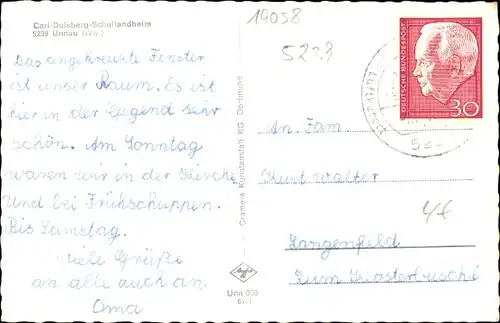 Carl-Duisberg-Schullandheim
5239 Unnau (Ww.)
Das angekreuzte Fenster
ist unser Raum. Es ist
hier in der Gegend sehr
schön. Am Sonntag
waren wir in der Kirche
und bei Frühschuppen.
Bis Samstag.
viele Grüße
an alle auch an
Oma
Cramers Kunstanstalt KG Dortmund
Unn
19058
5223
DEUTSCHE BUNDESPOST
30
An Fam.
Kurt Walter
Langenfeld
Zum
4f